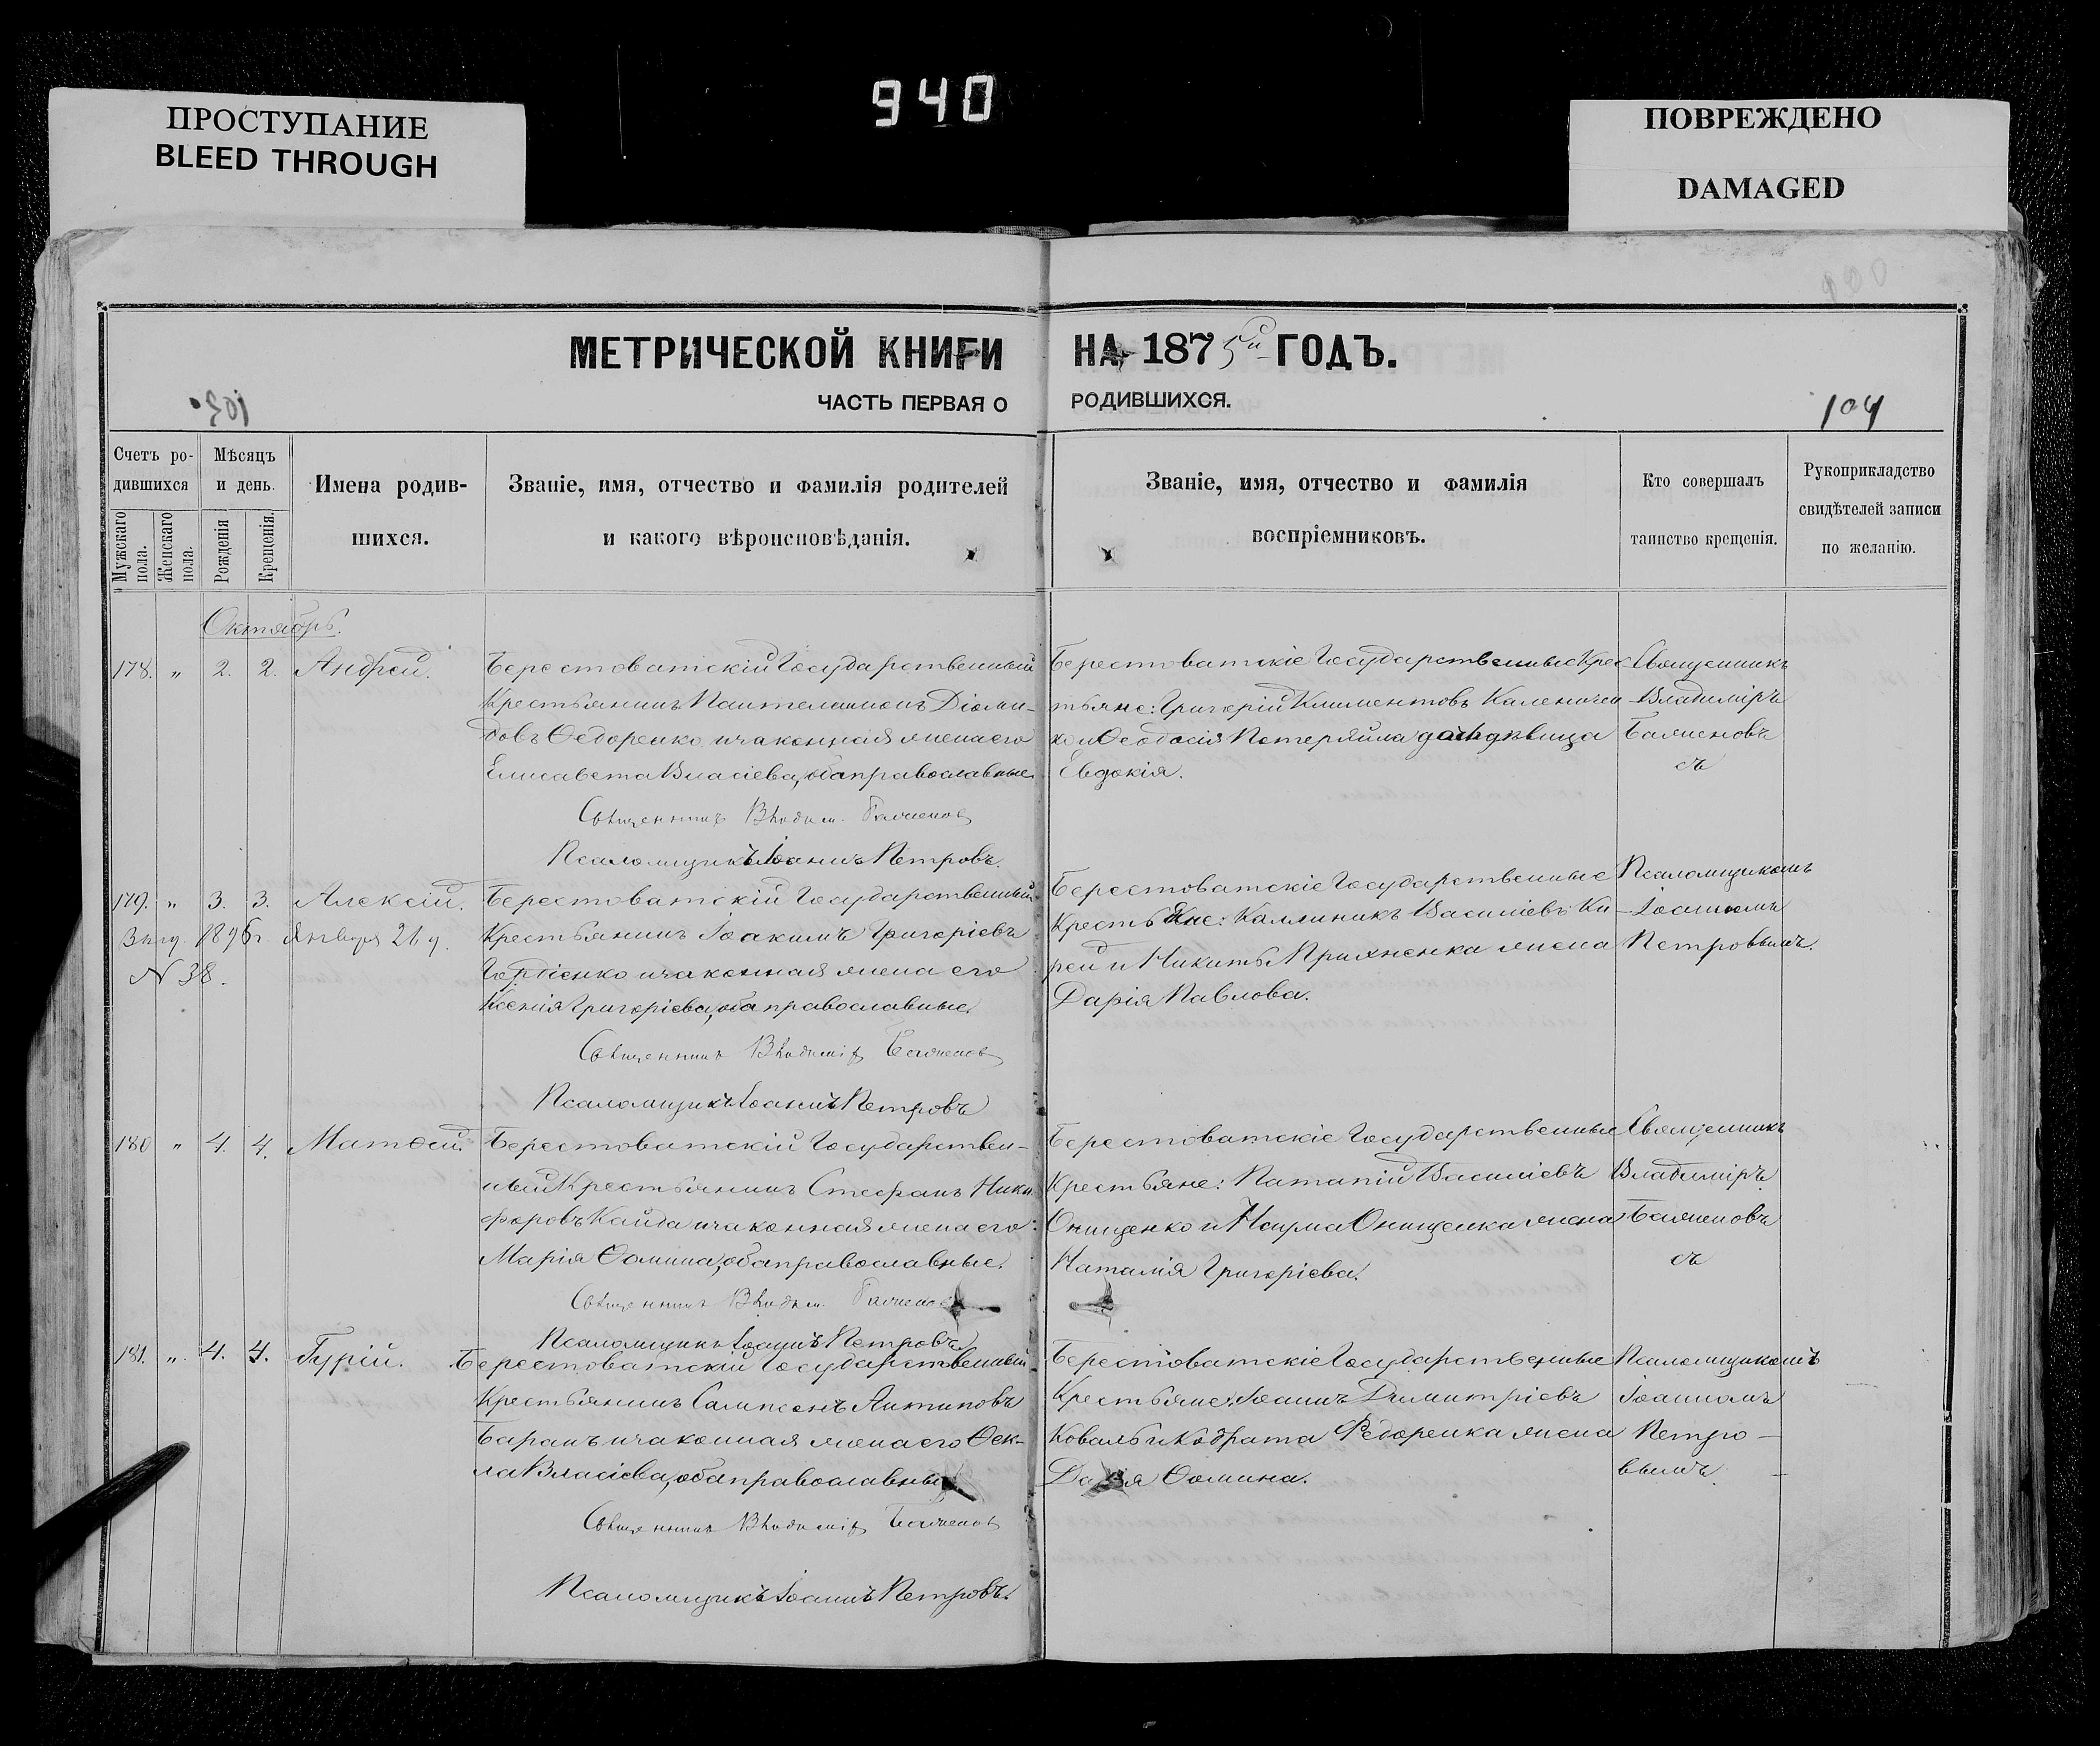 940
ПРОСТУПАНИЕ
BLEED THROUGH
ПОВРЕЖДЕНО
DAMAGED
МЕТРИЧЕСКОЙ КНИГИ НА 1875й ГОДЪ.
ЧАСТЬ ПЕРВАЯ О РОДИВШИХСЯ.
104
Счетъ ро-
дившихся
Мужскаго
пола.
Женскаго
пола.
Мѣсяцъ
и день.
Рожденія
Крещенія.
Имена родив-
шихся.
Званіе, имя, отчество и фамилія родителей
и какого вѣроисповѣданія.
Званіе, имя, отчество и фамилія
воспріемниковъ.
Кто совершалъ
таинство крещенія.
Рукоприкладство
свидѣтелей записи
по желанію.
Октябрь.
178. „ 2. 2. Андрей.
Берестоватскій Государственный
Крестьянинъ Пантелеимонъ Діоми-
довъ Ѳедоренко и законная жена его
Елисавета Власіева, оба православные.
Священникъ Владим.
Псаломщикъ Іоаннъ Петровъ.
Берестоватскіе Государственные Крес
тьяне: Григорій Климентовъ Каленичен
ко и Ѳеодосія дочь дѣвица
Евдокія.
Священникъ
Владиміръ
Баженовъ
съ
179. „ 3. 3. Алексій.
Выд. 1896г. Января 21 д.
N 38.
Берестоватскій Государственный
Крестьянинъ Іоакимъ Григоріевъ
Гордіенко и законная жена его
Ксенія Григоріева, оба православные.
Священникъ Владиміръ Баженовъ
Псаломщикъ Іоаннъ Петровъ
Берестоватскіе Государственные
Крестьяне: Каллиникъ Василіевъ Ки-
рей и Никиты жена
Дарія Павлова.
Псаломщикомъ
Іоанномъ
Петровымъ.
180 „ 4. 4. Матѳей.
Берестоватскій Государствен-
ный Крестьянинъ Стефанъ Ники
форовъ Кайда и законная жена его
Марія Ѳомина, оба православные.
Священникъ Владим.
Псаломщикъ Іоаннъ Петровъ
Берестоватскіе Государственные
Крестьяне: Патапій Василіевъ
Онищенко и Наума Онищенка жена
Наталія Григоріева.
Священникъ
Владиміръ
Баженовъ
съ
181. „ 4. 4. Гурій.
Берестоватскій Государственный
Крестьянинъ Сампсонъ Антиповъ
Баранъ и законная жена его Ѳек-
ла Власіева, оба православные
Священникъ Владиміръ Баженовъ
Псаломщикъ Іоаннъ Петровъ.
Берестоватскіе Государственные
Крестьяне: Іоаннъ Димитріевъ
Коваль и Кодрата Федоренка жена
Дарія Ѳомина.
Псаломщикомъ
Іоанномъ
Петро-
вымъ.